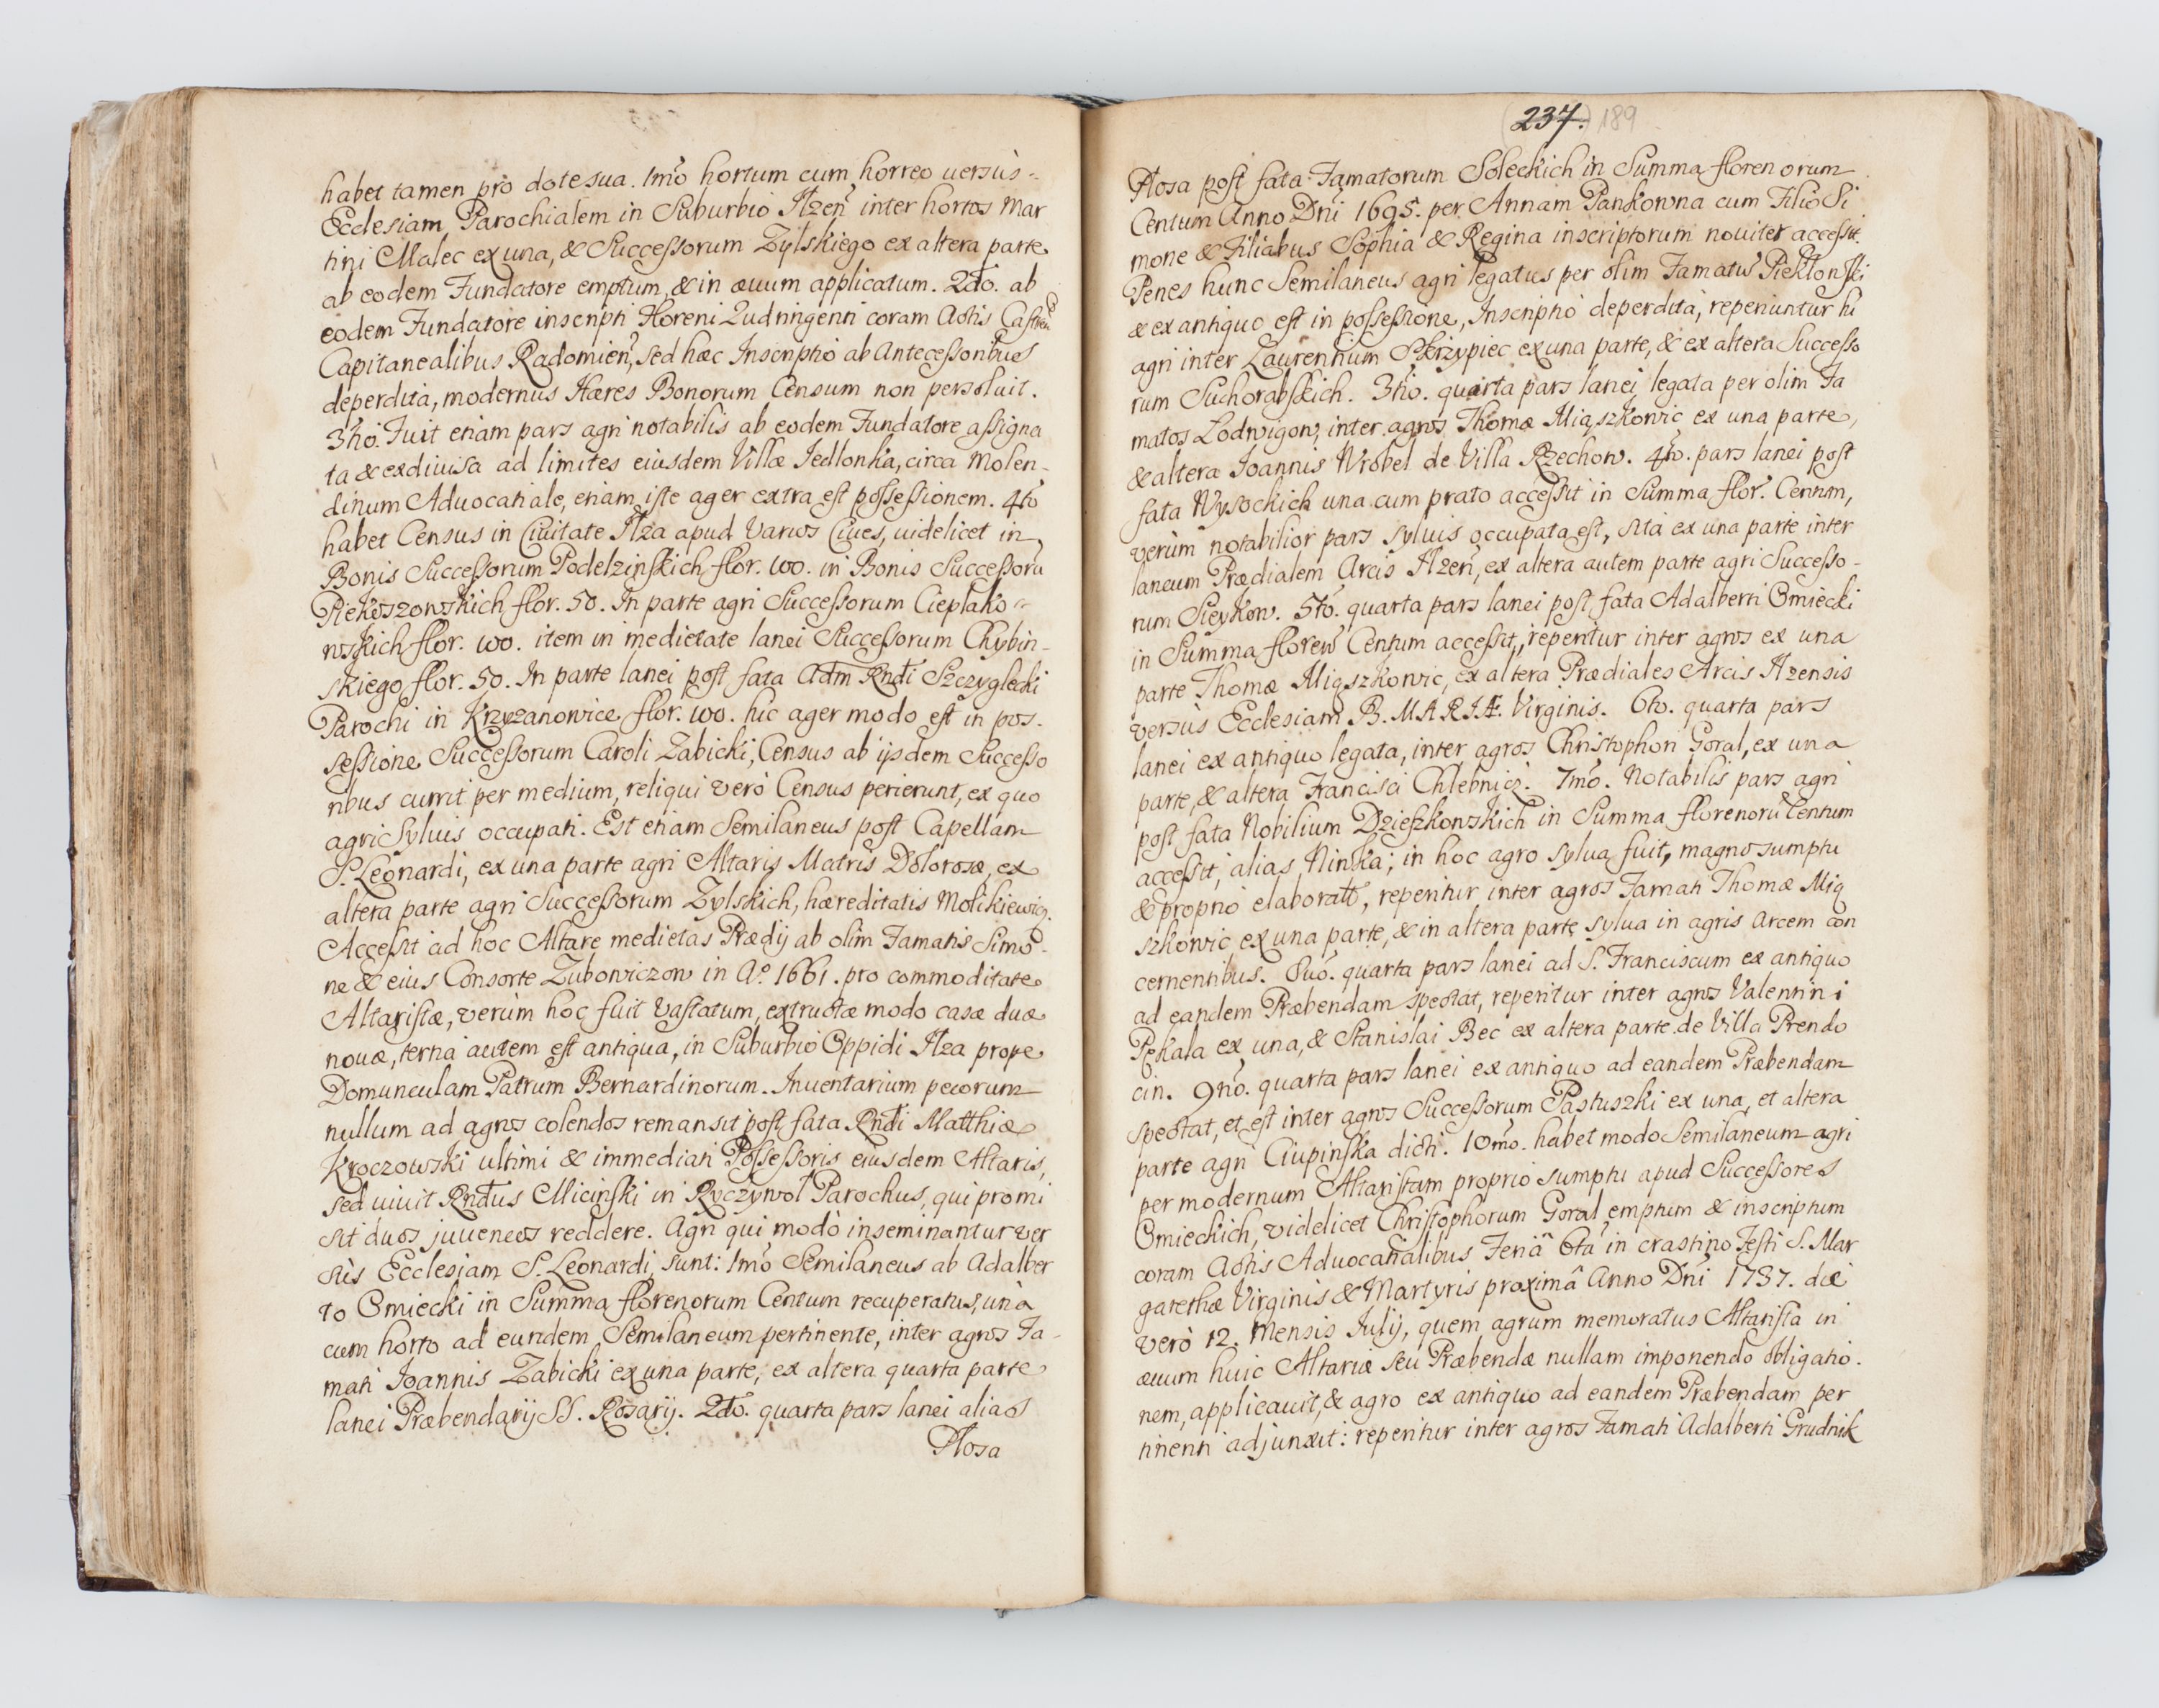 habet tamen pro dote sua. 1mo hortum cum horreo versùs
Ecclesiam Parochialem in Suburbio Ilzen inter hortos Mar
tini Malec ex una, & Successorum Zylskiego ex altera parte
ab eodem Fundatore emptum, & in œvum applicatum. 2do. ab
eodem Fundatore inscripti Floreni Quadringenti coram Actis Castren
Capitanealibus Radomien, sed hæc Inscriptio ab Antecessoribus
deperdita, modernus Hæres Bonorum Censum non persoluit.
3tio. Fuit etiam pars agri notabilis ab eodem Fundatore assigna
ta & exdiuisa ad limites eiusdem Villæ Jedlonka, circa Molen-
dinum Aduocatiale, etiam iste ager extra est possessionem. 4to
habet Census in Ciuitate Ilza apud Varios Ciues, uidelicet in
Bonis Successorum Podelzinskich flor. 100. in Bonis Successorū
Piekoszowskich flor. 50. In parte agri Successorum Cieplako-
wskich flor. 100. item in medietate lanei Successorum Chybin-
skiego flor. 50. In parte lanei post fata Adm Rndi Szczyglecki
Parochi in Krzyzanowice flor. 100. hic ager modo est in pos-
sessione Successorum Caroli Zabicki, Census ab ijsdem Successo
ribus currit per medium, reliqui verò Census perierunt, ex quo
agri Syluis occupati. Est etiam Semilaneus post Capellam
S. Leonardi, ex una parte agri Altaris Matris Dolorosæ, ex
altera parte agri Successorum Zylskich, hæreditatis Molikiewicz.
Accessit ad hoc Altare medietas Prædij ab olim Famatis Simo-
ne & eius Consorte Zubowiczow in Aº. 1661. pro commoditate
Altaristæ, verùm hoc fuit vastatum, extructæ modo casæ duæ
nouæ, tertia autem est antiqua, in Suburbio Oppidi Ilza prope
Domunculam Patrum Bernardinorum. Inuentarium pecorum
nullum ad agros colendos remansit post fata Rndi Matthiæ
Kroczowski ultimi & immediati Possessoris eiusdem Altaris,
sed uiuit Rndus Micinski in Ryczywol Parochus, qui promi
sit duos juuencos reddere. Agri qui modò inseminantur ver
sùs Ecclesiam S. Leonardi, sunt: 1mo Semilaneus ab Adalber
to Omiecki in Summa florenorum Centum recuperatus, unà
cum horto ad eundem Semilaneum pertinente, inter agros Fa-
mati Joannis Zabicki ex una parte, ex altera quarta parte
lanei Præbendarij SS. Rosarij. 2do. quarta pars lanei alias
Plosa
237. 189
Plosa post fata Famatorum Soleckich in Summa florenorum
Centum Anno Dni 1695. per Annam Pankowna cum Filio Si
mone & Filiabus Sophia & Regina inscriptorum nouiter accessit.
Penes hunc Semilaneus agri legatus per olim Famatū Pieklonski
& ex antiquo est in possessione, Inscriptio deperdita, reperiuntur hi
agri inter Laurentium Skrzypiec ex una parte, & ex altera Successo
rum Suchorabskich. 3tio. quarta pars lanei legata per olim Fa
matos Lodwigow, inter agros Thomæ Miąszkowic ex una parte,
& altera Joannis Wrobel de Villa Rzechow. 4to. pars lanei post
fata Wysockich una cum prato accessit in Summa flor. Centum,
verùm notabilior pars syluis occupata est, sita ex una parte inter
laneum Prædialem Arcis Ilzen, ex altera autem parte agri Successo-
rum Sieykow. 5to. quarta pars lanei post fata Adalberti Omiecki
in Summa floren Centum accessit, reperitur inter agros ex una
parte Thomæ Miąszkowic, ex altera Prædiales Arcis Ilzensis
versùs Ecclesiam B. MARIÆ Virginis. 6to. quarta pars
lanei ex antiquo legata, inter agros Christophori Goral, ex una
parte, & altera Francisci Chlebnicz. 7mo. Notabilis pars agri
post fata Nobilium Dzieszkowskich in Summa florenorū Centum
accessit, alias Ninka; in hoc agro sylua fuit, magno sumptu
& proprio elaborata, reperitur inter agros Famati Thomæ Mią
szkowic ex una parte, & in altera parte sylua in agris Arcem con
cernentibus. 8uo. quarta pars lanei ad S. Franciscum ex antiquo
ad eandem Præbendam spectat, reperitur inter agros Valentini
Pękala ex una, & Stanislai Bec ex altera parte de Villa Prendo
cin. 9no. quarta pars lanei ex antiquo ad eandem Præbendam
spectat, et est inter agros Successorum Pastuszki ex una, et altera
parte agri Ciupinska dicti. 10mo. habet modo Semilaneum agri
per modernum Altaristam proprio sumptu apud Successores
Omieckich, videlicet Christophorum Goral emptum & inscriptum
coram Actis Aduocatialibus Feriâ 6ta in crastino Festi S. Mar
garethæ Virginis & Martyris proximâ Anno Dni 1737. die
verò 12. Mensis Julij, quem agrum memoratus Altarista in
æuum huic Altariæ seu Præbendæ nullam imponendo obligatio-
nem, applicauit, & agro ex antiquo ad eandem Præbendam per
tinenti adjunxit: reperitur inter agros Famati Adalberti Grudnik